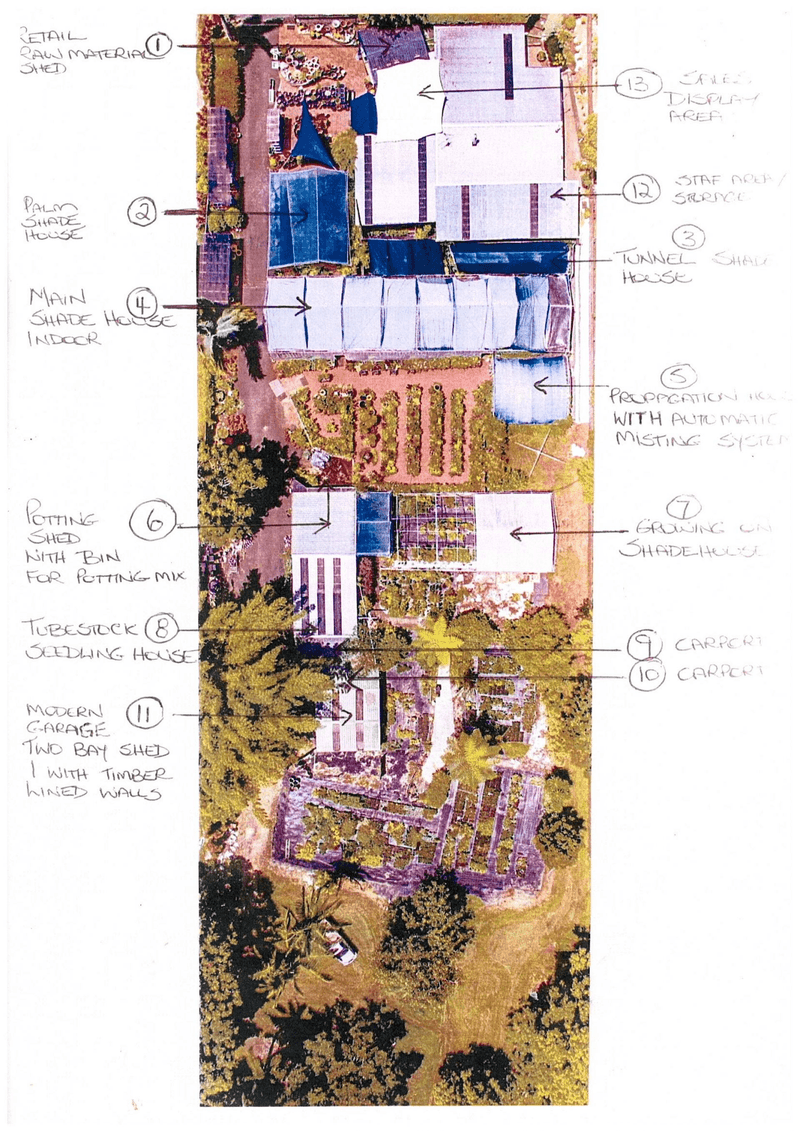 RETAIL
RAW MATERIAL
SHED
1
13
SALES
DISPLAY
AREA
12
STAF AREA/
STORAGE
PALM
SHADE
HOUSE
2
3
TUNNEL SHADE
HOUSE
MAIN
SHADE HOUSE
INDOOR
4
5
PROPAGATION
WITH AUTOMATIC
MISTING SYSTEM
POTTING
SHED
WITH BIN
FOR POTTING MIX
6
7
GROWING ON
SHADEHOUSE
TUBESTOCK
SEEDLING HOUSE
8
9 CARPORT
10 CARPORT
MODERN
GARAGE
TWO BAY SHED
1 WITH TIMBER
LINED WALLS
11